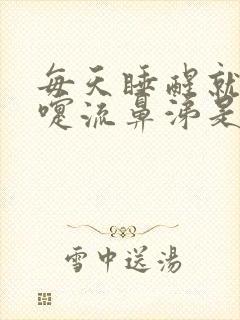 每天睡醒就
嚏流鼻涕是
雪中送湯